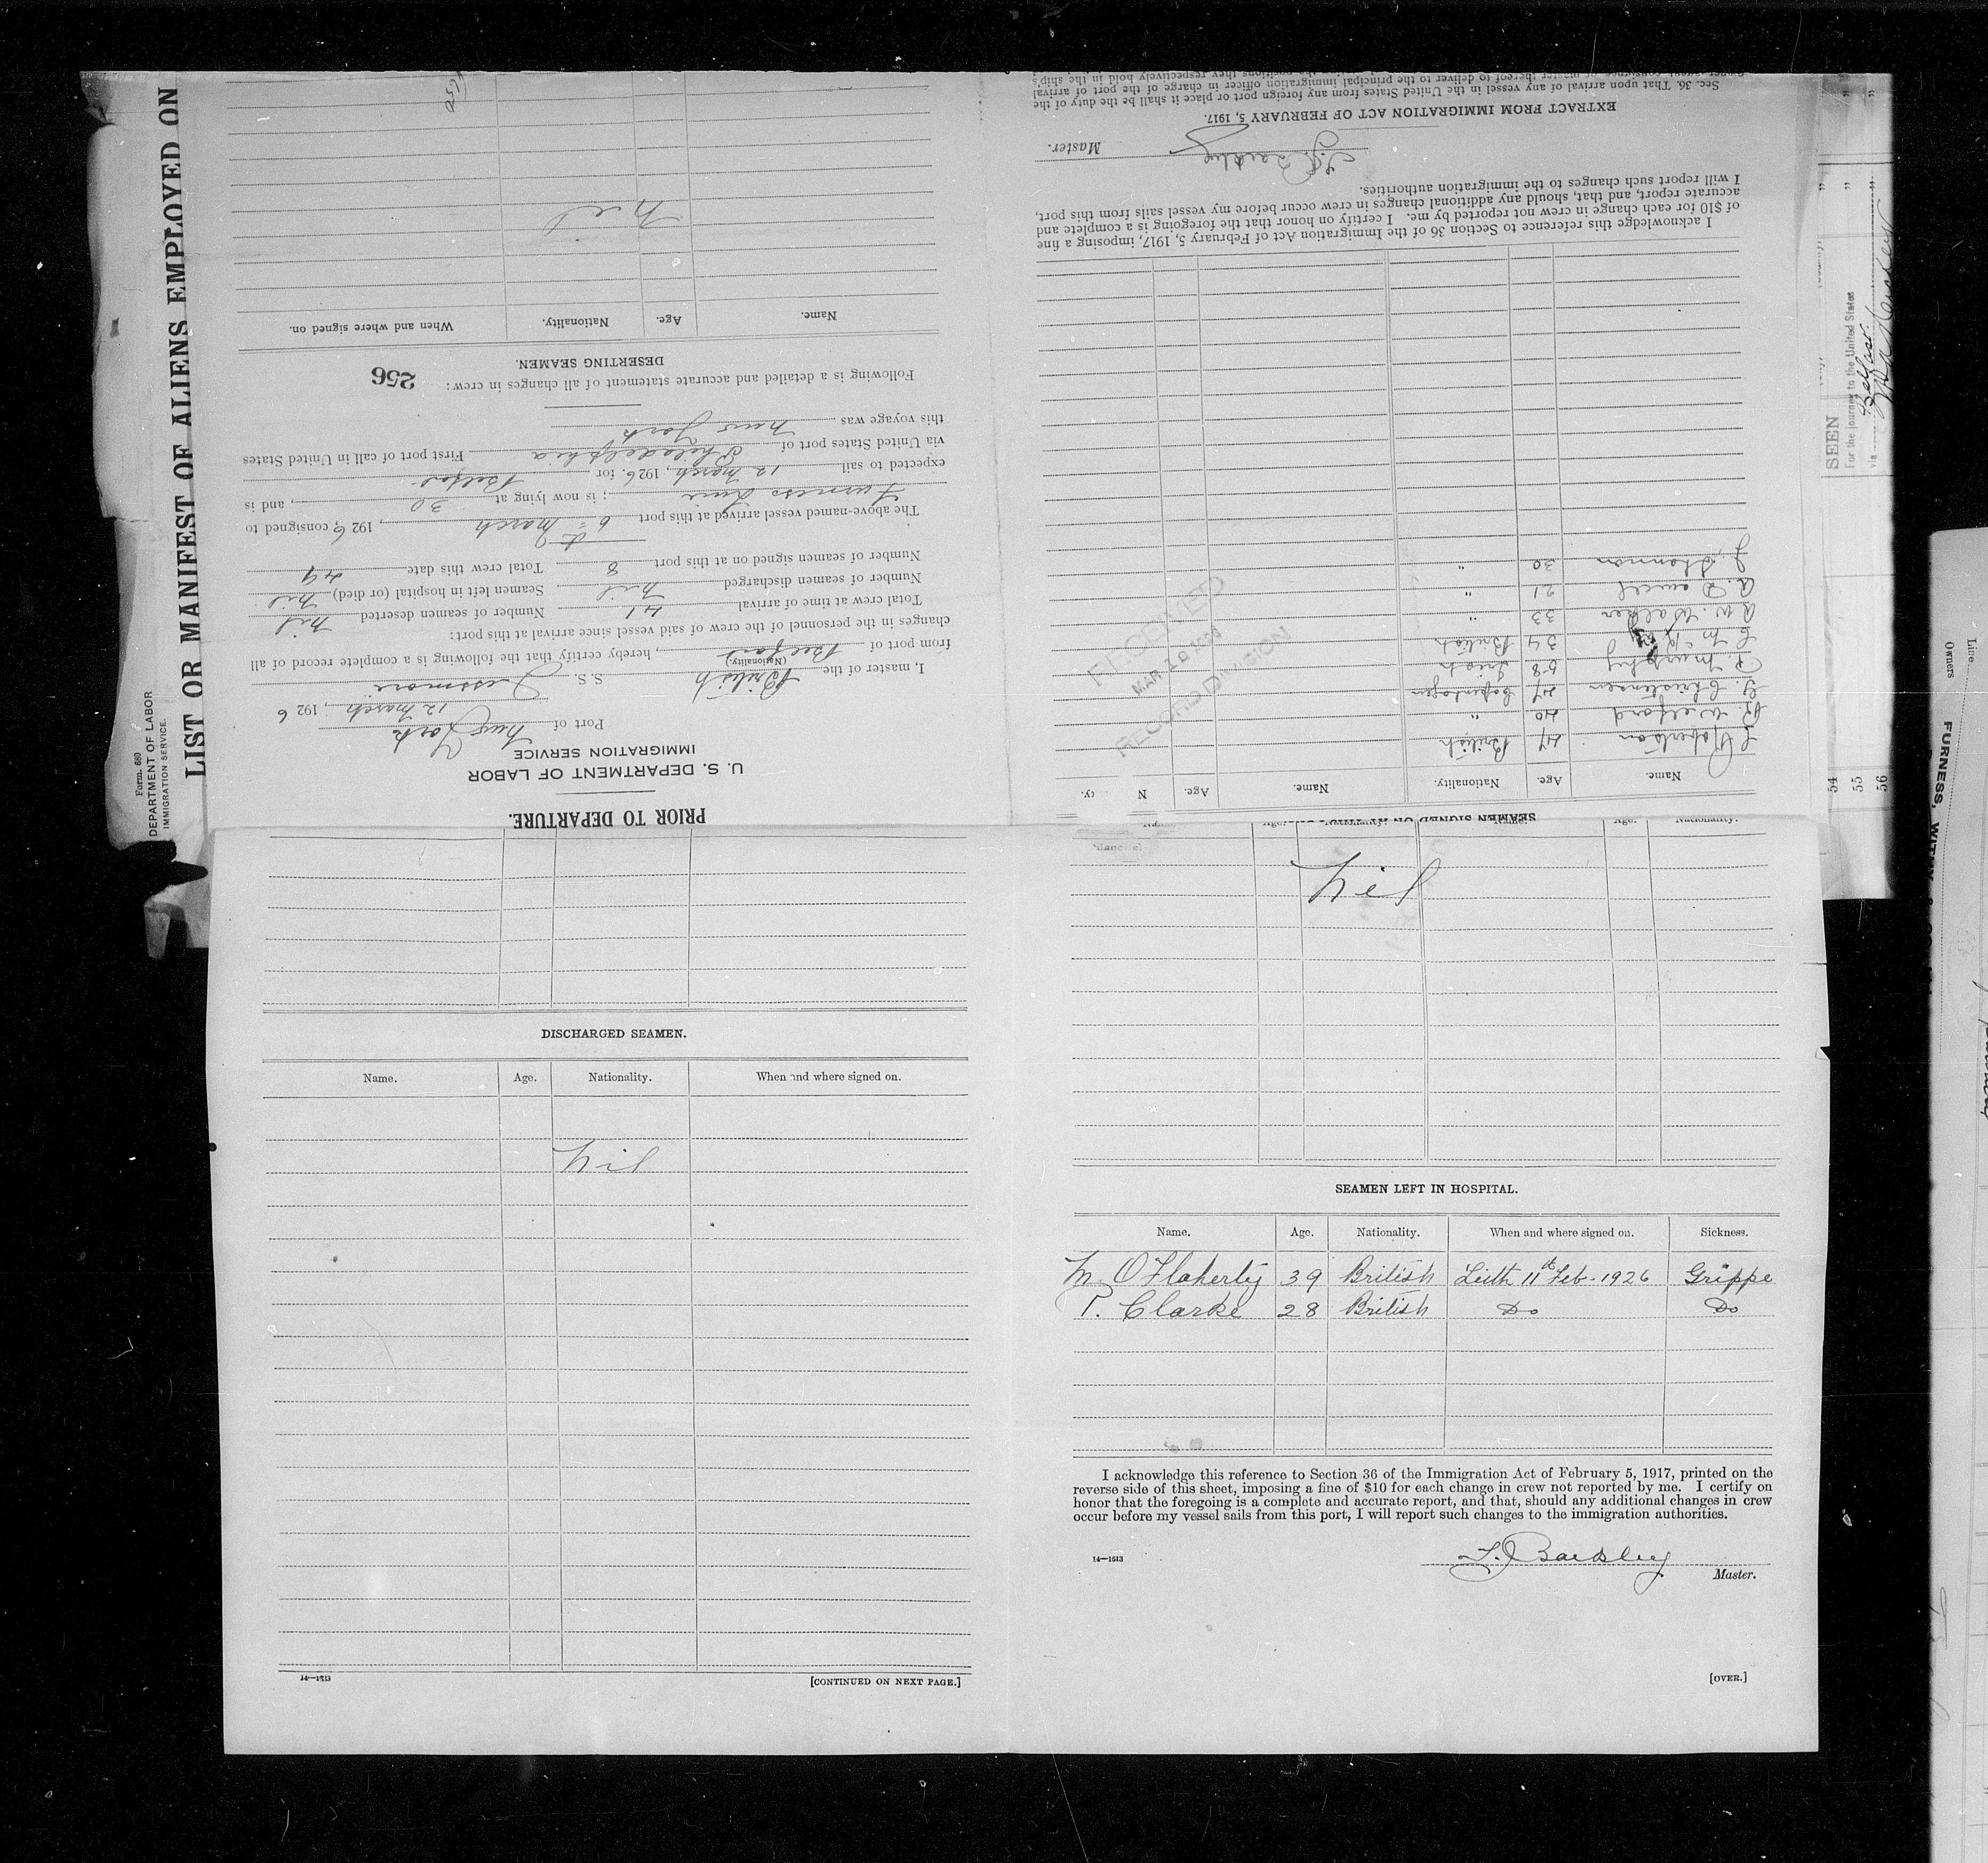 Form 680
DEPARTMENT OF LABOR
IMMIGRATION SERVICE.
LIST OR MANIFEST OF ALIENS EMPLOYED ON
PRIOR TO DEPARTURE.
U. S. DEPARTMENT OF LABOR
IMMIGRATION SERVICE
Port of New York
12 March, 1926
I, master of the British S. S.
(Nationality.)
from port of Belfast, hereby certify that the following is a complete record of all
changes in the personnel of the crew of said vessel since arrival at this port:
Total crew at time of arrival 41 Number of seamen deserted Nil
Number of seamen discharged Nil Seamen left in hospital (or died) Nil
Number of seamen signed on at this port 8 Total crew this date 49
The above-named vessel arrived at this port 6th March, 1926, consigned to
Furness Line; is now lying at 30, and is
expected to sail 12 March, 1926. for Belfast
via United States port of Philadelphia First port of call in United States
this voyage was New York
Following is a detailed and accurate statement of all changes in crew:
256
DESERTING SEAMEN.
Name. Age. Nationality. When and where signed on.
Nil
SEAMEN SIGNED ON
Name. Age. Nationality. Name. Age. N ty.
Robertson 47 British
Welford 40 "
G. Christensen 47 Copenhagen
P. Murphy 58 Irish
34 British
A. W. Walker 33 "
A. Daniel 21 "
J. Shannon 30 "
RECEIVED
MAR 1926
RECORD DIVISION
I acknowledge this reference to Section 36 of the Immigration Act of February 5, 1917, imposing a fine
of $10 for each change in crew not reported by me. I certify on honor that the foregoing is a complete and
accurate report, and that, should any additional changes in crew occur before my vessel sails from this port,
I will report such changes to the immigration authorities.
Master.
EXTRACT FROM IMMIGRATION ACT OF FEBRUARY 5, 1917.
Sec. 36. That upon arrival of any vessel in the United States from any foreign port or place it shall be the duty of the
owner, agent, consignee, or master thereof to deliver to the principal immigration officer in charge of the port of arrival
positions they respectively hold in the ship's
54
55
56
SEEN
For the journey to the United States
via
Belfast
Line
Owners
FURNESS, WITHY
Nil
DISCHARGED SEAMEN.
Name. Age. Nationality. When and where signed on.
Nil
14—1613
[CONTINUED ON NEXT PAGE.]
SEAMEN LEFT IN HOSPITAL.
Name. Age. Nationality. When and where signed on. Sickness.
M. O'Flaherty 39 British Leith 11th Feb. 1926 Grippe
P. Clarke 28 British Do Do
I acknowledge this reference to Section 36 of the Immigration Act of February 5, 1917, printed on the
reverse side of this sheet, imposing a fine of $10 for each change in crew not reported by me. I certify on
honor that the foregoing is a complete and accurate report, and that, should any additional changes in crew
occur before my vessel sails from this port, I will report such changes to the immigration authorities.
14—1613
Master.
[OVER.]